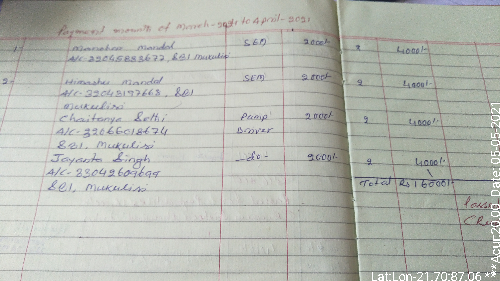 Payment months of March-2021 to April-2021
1- Manohar Mandal SEM 2000/- 2 4000/-
A/C-33045883677, SBI Mukulisi
2- Himanshu Mandal SEM 2000/- 2 4000/-
A/C-32043197668, SBI
Mukulisi
Chaitanya Sethi Pump 2000/- 2 4000/-
A/C-32066018674 Driver
SBI, Mukulisi
Jayanta Singh -do- 2000/- 2 4000/-
A/C-33042604699
SBI, Mukulisi Total Rs 16000/-
Lat:Lon-21.70:87.06
***Acur:20.00 Date:05-05-2021